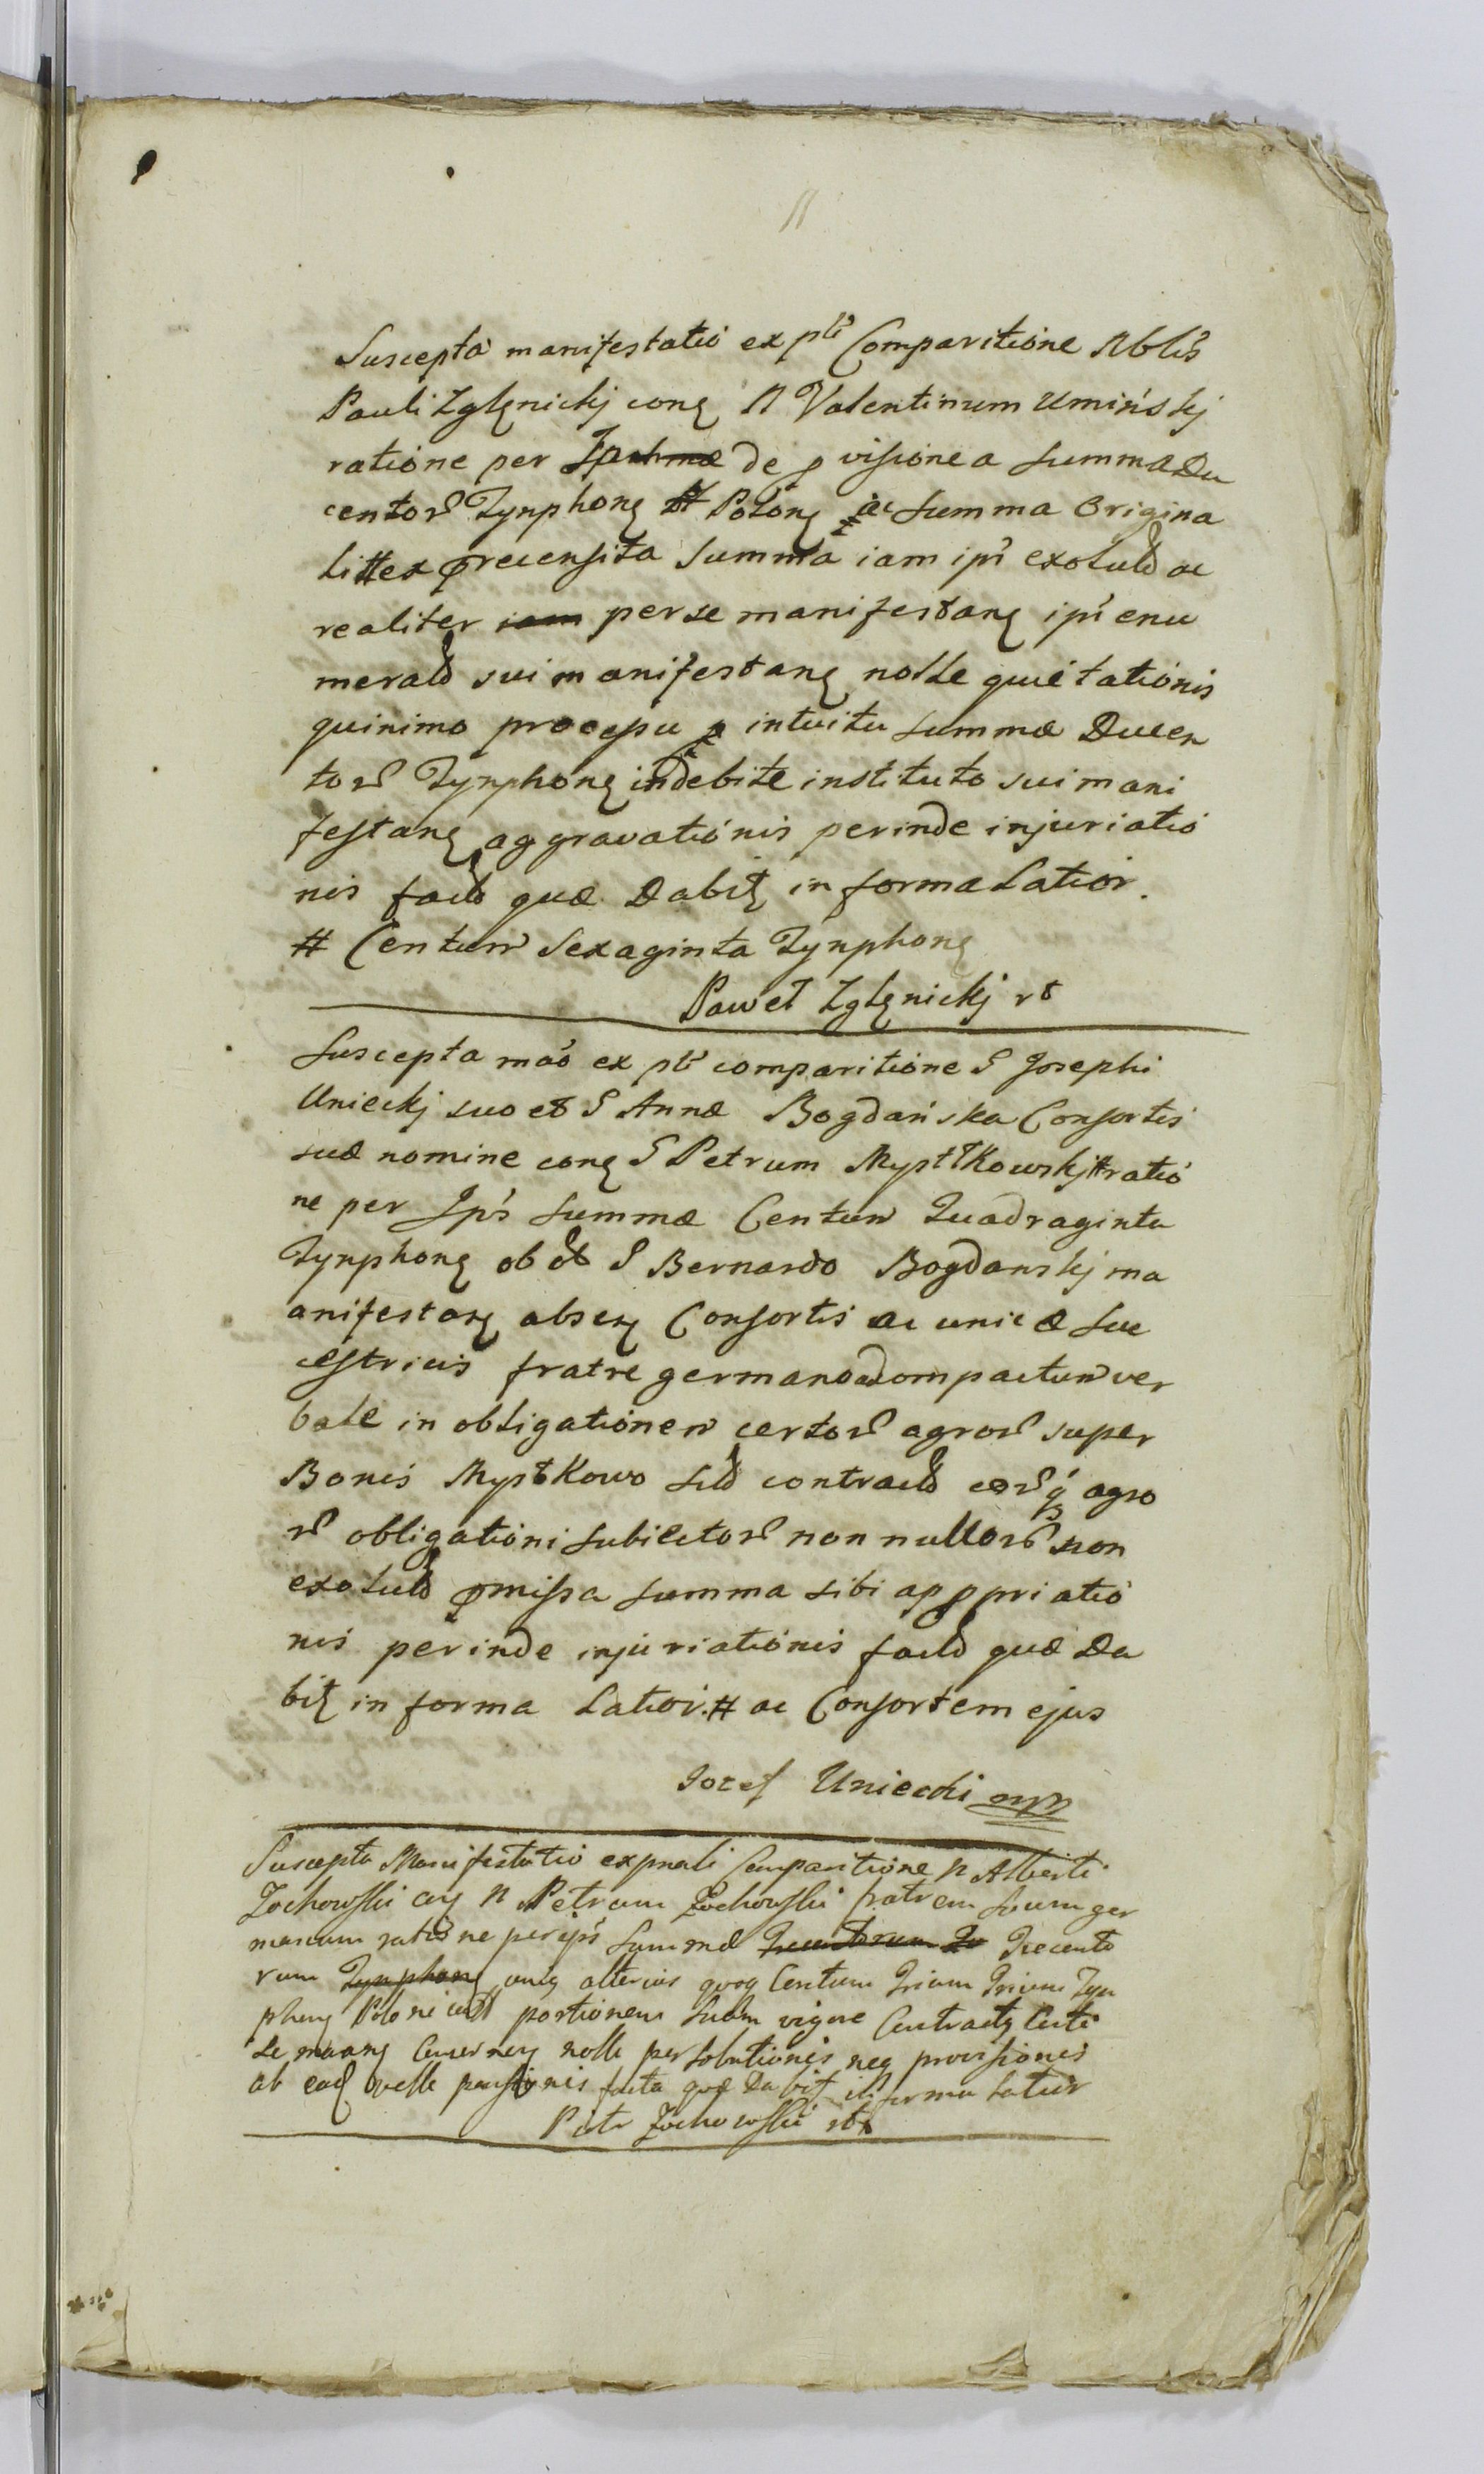 11
Suscepta manifestatio ex pti Comparitione Nblis
Pauli Zglęnickj conę N Valentinum Uminskj
ratione per de pvisione a summa Du
centor Tynphonę Polonę ac summa Origina
litter precensita summa iam ipi exolud ac
realiter iam per se manifestanę ipi enu
merald sui manifestanę nolle quietationis
quinimo processu p intuitu summæ Ducen
tor Tynphonę indebite instituto sui mani
festanę aggravationis perinde injuriatio
nis facld quæ Dabitę in forma Latior.
# Centum Sexaginta Tynphonę
Paweł Zglęnickj rs
Suscepta mao ex pti comparitione G Josephi
Unieckj suo et G Annæ Bogdańska Consortis
suæ nomine conę G Petrum Mystkowskj # ratio
ne per Ips summæ Centum Quadraginta
Tynphonę ob G Bernardo Bogdanskj ma
anifestanę absenę Consortis ac unicæ suc
cestricis fratre germano ad compactum ver
bale in obligationem certor agror super
Bonis Mystkowo contracld eorq agro
r obligationi subiector non nullor non
exolud pmissa summa sibi appriatio
nis perinde injuriationis facld quæ Da
bitę in forma Latior. # ac Consortem ejus
Jozef Uniecki mpp
Suscepta Manifestatio ex pnali Comparitione N Alberti
Zochowski conę N Petrum Zochowski fratrem suum ger
manum ratione per ips summæ Trecento
rum Tynphonę alterius quoq Centum Trium Tyn
phonę Polonicał portionem suam vigore Contractę
se maanę nolle persolutionis neq provisionis
ab ead velle pensionis facta quæ Dabitę in forma Latior
Piotr Zochowski